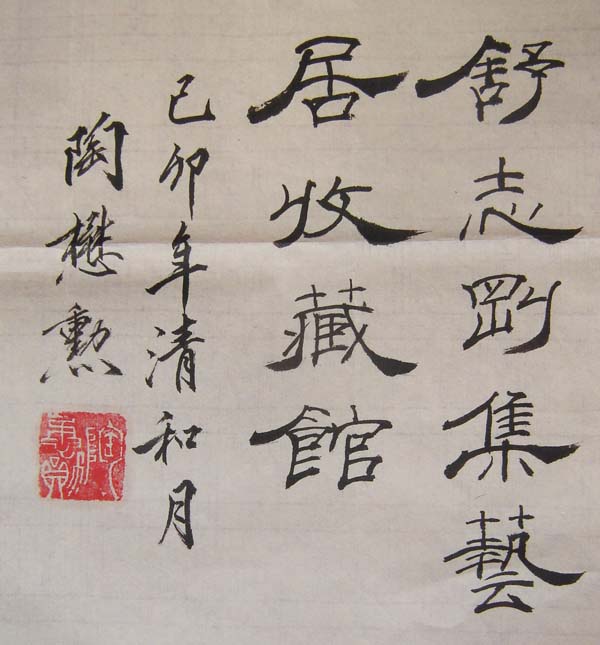 舒志剛集藝
居收藏館
己卯年清和月
陶懋勳